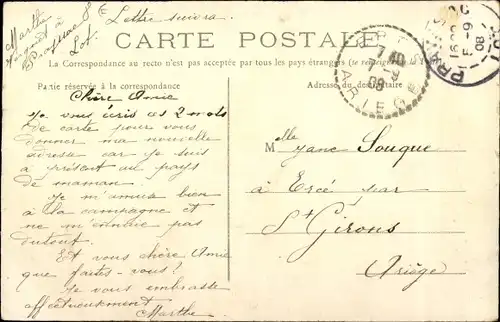 Lettre suivra.
Marthe
à
Puyssac
Lot.
CARTE POSTALE
La Correspondance au recto n'est pas acceptée par tous les pays étrangers (se renseigner à la
Partie réservée à la correspondance
Adresse du destinataire
ARIEGE
08
16
F-9
08
Chère Amie
Je vous écris ces 2 mots
de carte pour vous
donner ma nouvelle
adresse car je suis
à présent au pays
de maman.
Je m'amuse bien
à la campagne et
ne m'ennuie pas
dutout.
Et vous chère Amie
que faites-vous?
Je vous embrasse
affectueusement
Marthe
Melle Jane Souque
à Ercé par
St Girons
Ariège